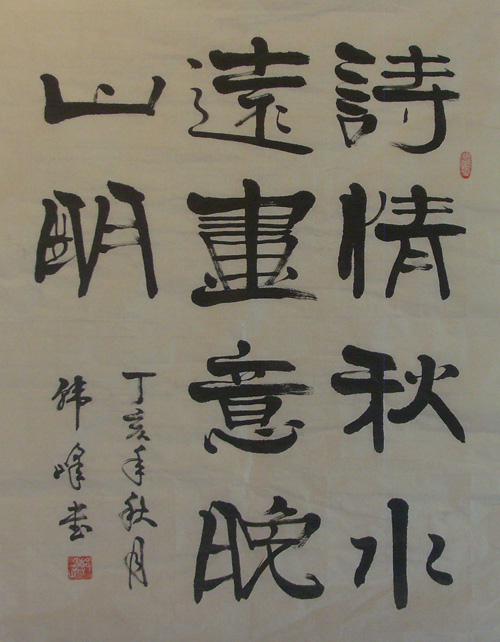 詩情秋水
遠畫意晚
山明
丁亥年秋月